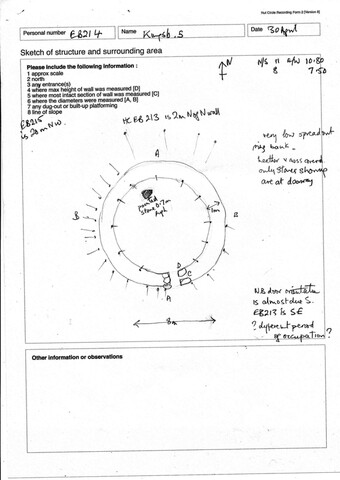 Hut Circle Recording Form 2 [Version 6]
Personal number EB214
Name
Date 30 April
Sketch of structure and surrounding area
Please include the following information :
1 approx scale
2 north
3 any entrance(s)
4 where max height of wall was measured [D]
5 where most intact section of wall was measured [C]
6 where the diameters were measured [A, B]
7 any dug-out or built-up platforming
8 line of slope
N
N/S 11 E/W 10.80
8 7.50
EB215
is 20m NW.
HC EB213 is 2m N of N wall
very low spread out
ring bank.
heather & moss cover
only stones showing
are at doorway
A
B
pointed
stone 0.7m
high
1m
B
D
C
A
8m
NB door orientation
is almost due S.
EB213 is SE
? different period
of occupation ?
Other information or observations